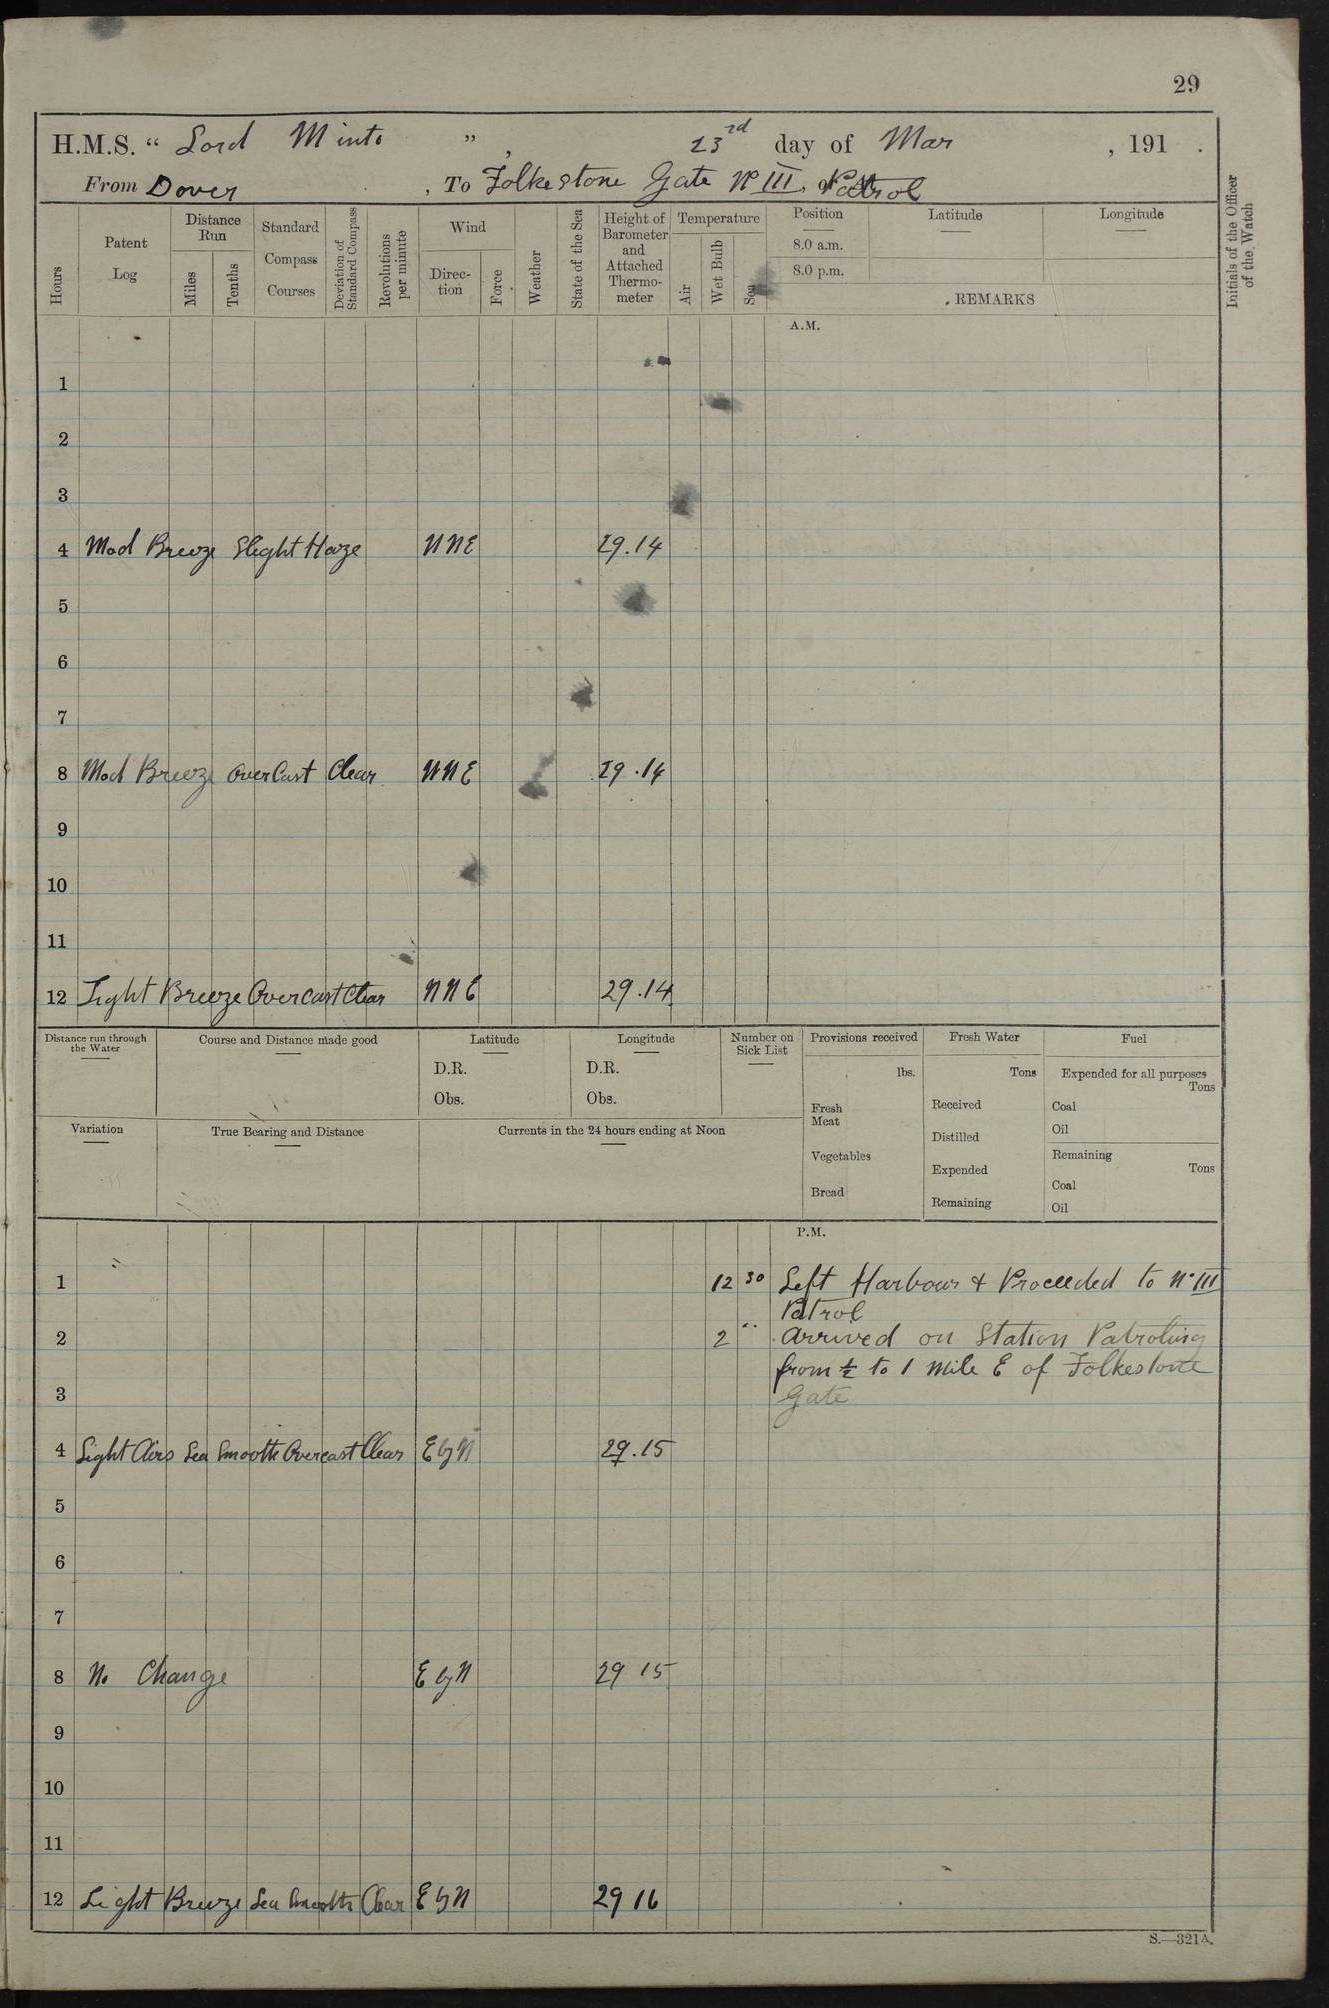 29
H.M.S. " Lord Minto " , 23rd day of Mar , 191 .
From Dover , To Folkestone Gate No III. Patrol
Hours
Patent Log
Distance Run
Miles
Tenths
Standard Compass Courses
Deviation of Standard Compass
Revolutions per minute
Wind
Direction
Force
Weather
State of the Sea
Height of Barometer and Attached Thermometer
Temperature
Air
Wet Bulb
Sea
Position
8.0 a.m.
8.0 p.m.
Latitude
Longitude
REMARKS
Initials of the Officer of the Watch
A.M.
1
2
3
4 Mod Breeze Slight Haze NNE 29.14
5
6
7
8 Mod Breeze OverCast Clear NNE 29.14
9
10
11
12 Light Breeze Overcast Clear NNE 29.14
Distance run through the Water
Course and Distance made good
Latitude
D.R.
Obs.
Longitude
D.R.
Obs.
Number on Sick List
Provisions received
lbs.
Fresh Meat
Vegetables
Bread
Fresh Water
Tons
Received
Distilled
Expended
Remaining
Fuel
Expended for all purposes
Tons
Coal
Oil
Remaining
Tons
Coal
Oil
Variation
True Bearing and Distance
Currents in the 24 hours ending at Noon
P.M.
1 12 30 Left Harbour & Proceeded to No III
Patrol
2 2 " Arrived on Station Patroling
from ½ to 1 Mile E of Folkestone
3 Gate
4 Light Airs Sea Smooth Overcast Clear E by N 29.15
5
6
7
8 No Change E by N 29 15
9
10
11
12 Light Breeze Sea Smooth Clear E by N 29 16
S.—321A.